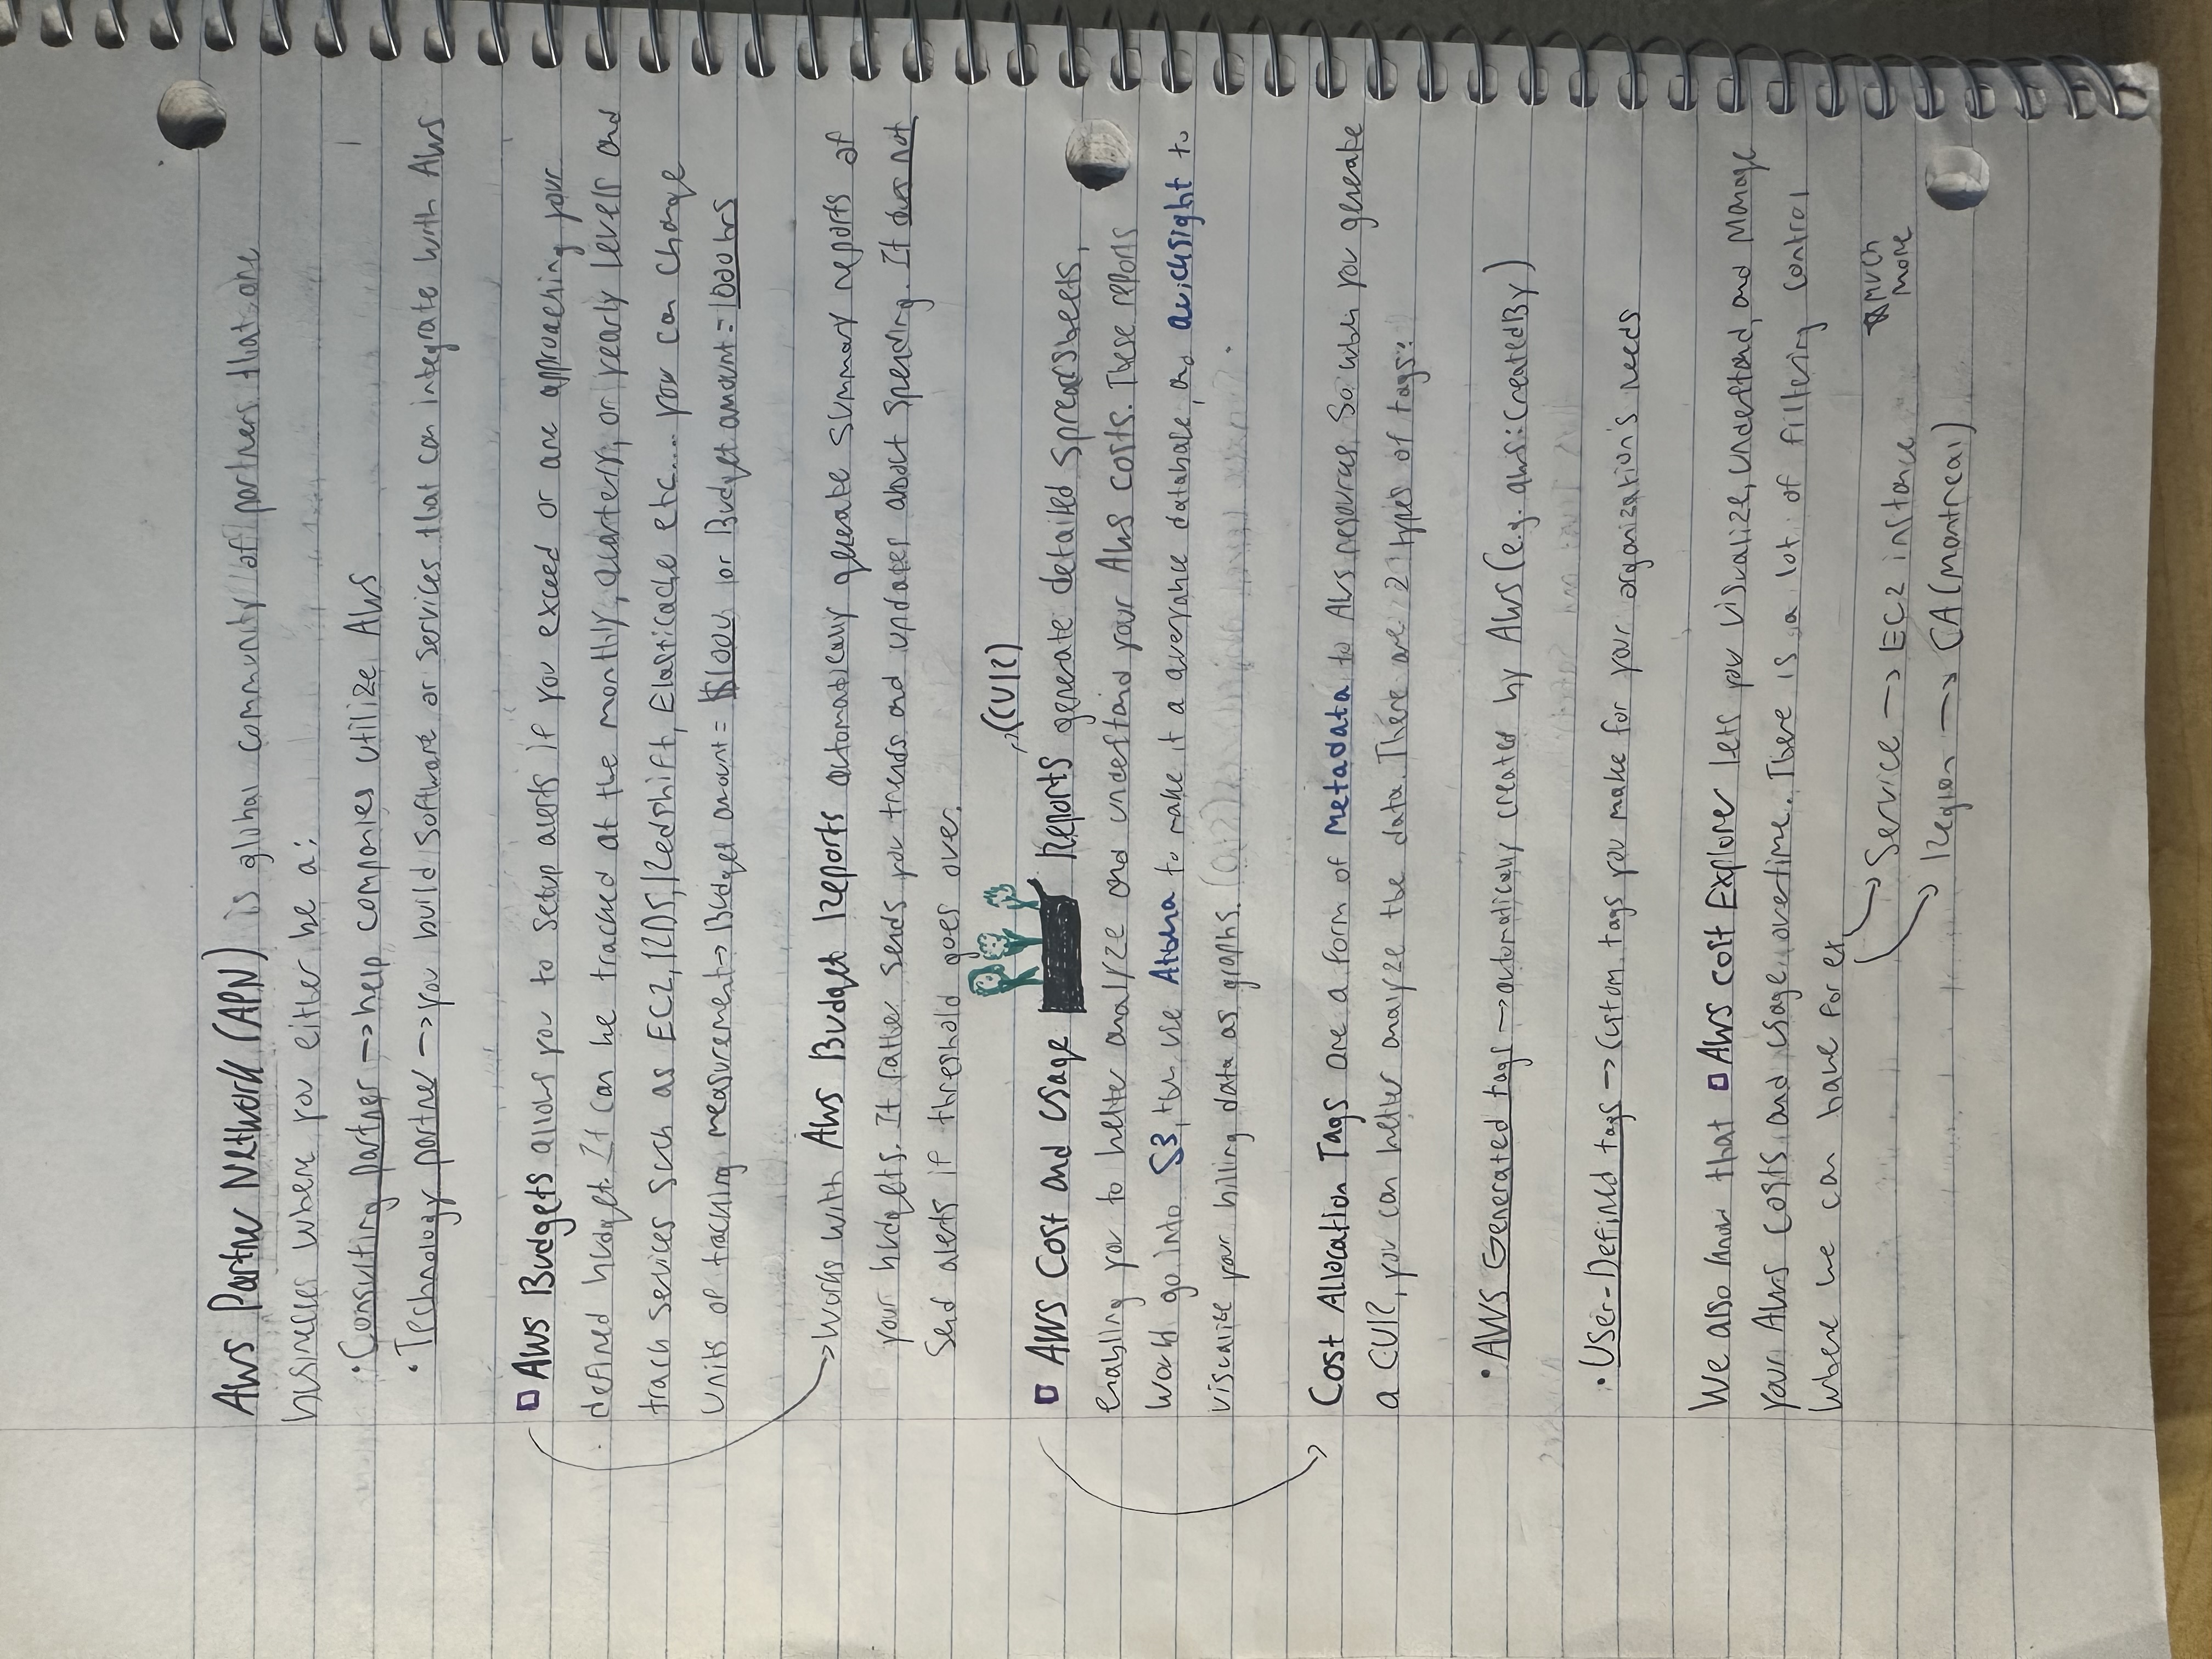 AWS Partner Network (APN) is global community of partners that are
businesses where you either be a:
• Consulting partner → help companies utilize AWS
• Technology partner → you build software or services that can integrate with AWS
AWS Budgets allows you to setup alerts if you exceed or are approaching your
defined budget. It can be tracked at the monthly, quarterly, or yearly levels and
track services such as EC2, RDS, Redshift, Elasticache etc.... you can change
units of tracking measurement → Budget amount = $1000 or Budget amount = 1000 hrs
→ Works with AWS Budget Reports automatically generate summary reports of
your budgets. It rather sends you trends and updates about spending. It does not
send alerts if threshold goes over.
→ (CUR)
AWS Cost and Usage Reports generate detailed spreadsheets,
enabling you to better analyze and understand your AWS costs. These reports
would go into S3, then use Athena to make it a queryable database, and Quicksight to
visualize your billing data as graphs.
Cost Allocation Tags are a form of metadata to AWS resources. So when you generate
a CUR, you can better analyze the data. There are 2 types of tags:
• AWS Generated tags → automatically created by AWS (e.g. aws:CreatedBy)
• User-Defined tags → Custom tags you make for your organization's needs
We also know that AWS Cost Explorer lets you visualize, understand, and manage
your AWS costs and usage overtime. There is a lot of filtering control
where we can have for ex,
→ Service → EC2 instance
→ Region → CA (Montreal)
☆ Much
more